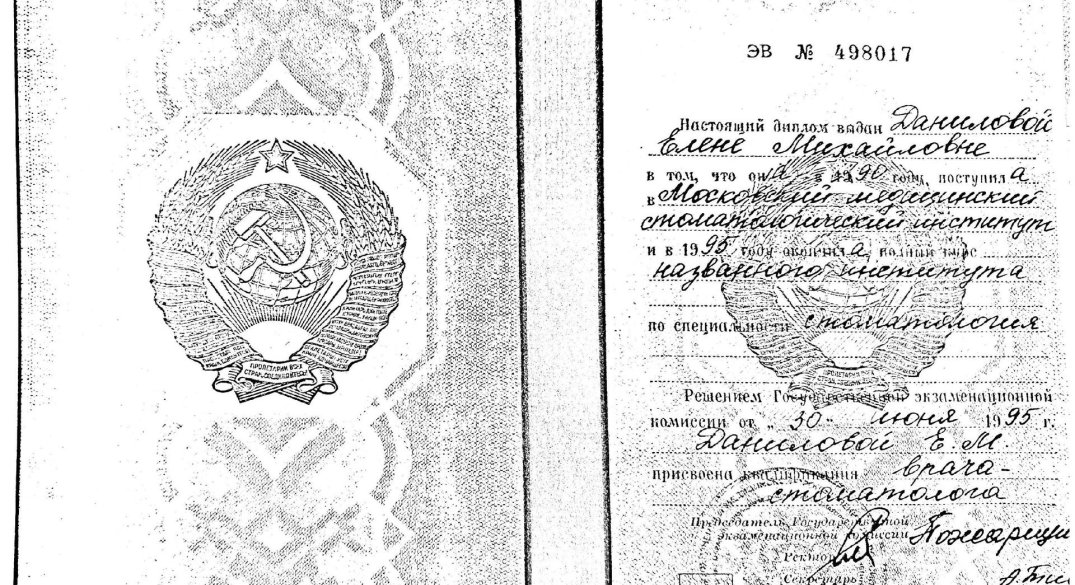 ПРОЛЕТАРИИ ВСЕХ
СТРАН, СОЕДИНЯЙТЕСЬ!
ЭВ № 498017
Настоящий диплом выдан Даниловой
Елене Михайловне
в том, что она в 1990 году поступила
в Московский медицинский
стоматологический институт
и в 1995 году окончила полный курс
названного института
по специальности стоматология
Решением Государственной экзаменационной
комиссии от „30“ июня 1995 г.
Даниловой Е. М.
присвоена квалификация врача-
стоматолога
Председатель Государственной
экзаменационной комиссии
Ректор
Секретарь